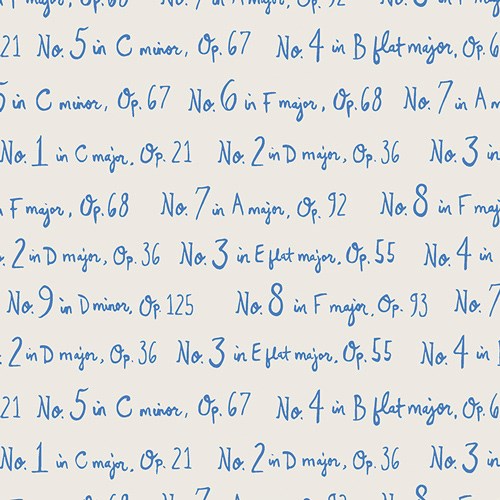 F major, Op. 68 No. 7 in A major, Op. 92 No. 8 in F major
21 No. 5 in C minor, Op. 67 No. 4 in B flat major, Op. 6
5 in C minor, Op. 67 No. 6 in F major, Op. 68 No. 7 in A m
No. 1 in C major, Op. 21 No. 2 in D major, Op. 36 No. 3 in
F major, Op. 68 No. 7 in A major, Op. 92 No. 8 in F maj
. 2 in D major, Op. 36 No. 3 in E flat major, Op. 55 No. 4 in
No. 9 in D minor, Op 125 No. 8 in F major, Op. 93 No. 7
. 2 in D major, Op. 36 No. 3 in E flat major, Op. 55 No. 4 in
21 No. 5 in C minor, Op. 67 No. 4 in B flat major, Op. 6
No. 1 in C major, Op. 21 No. 2 in D major, Op. 36 No. 3 in